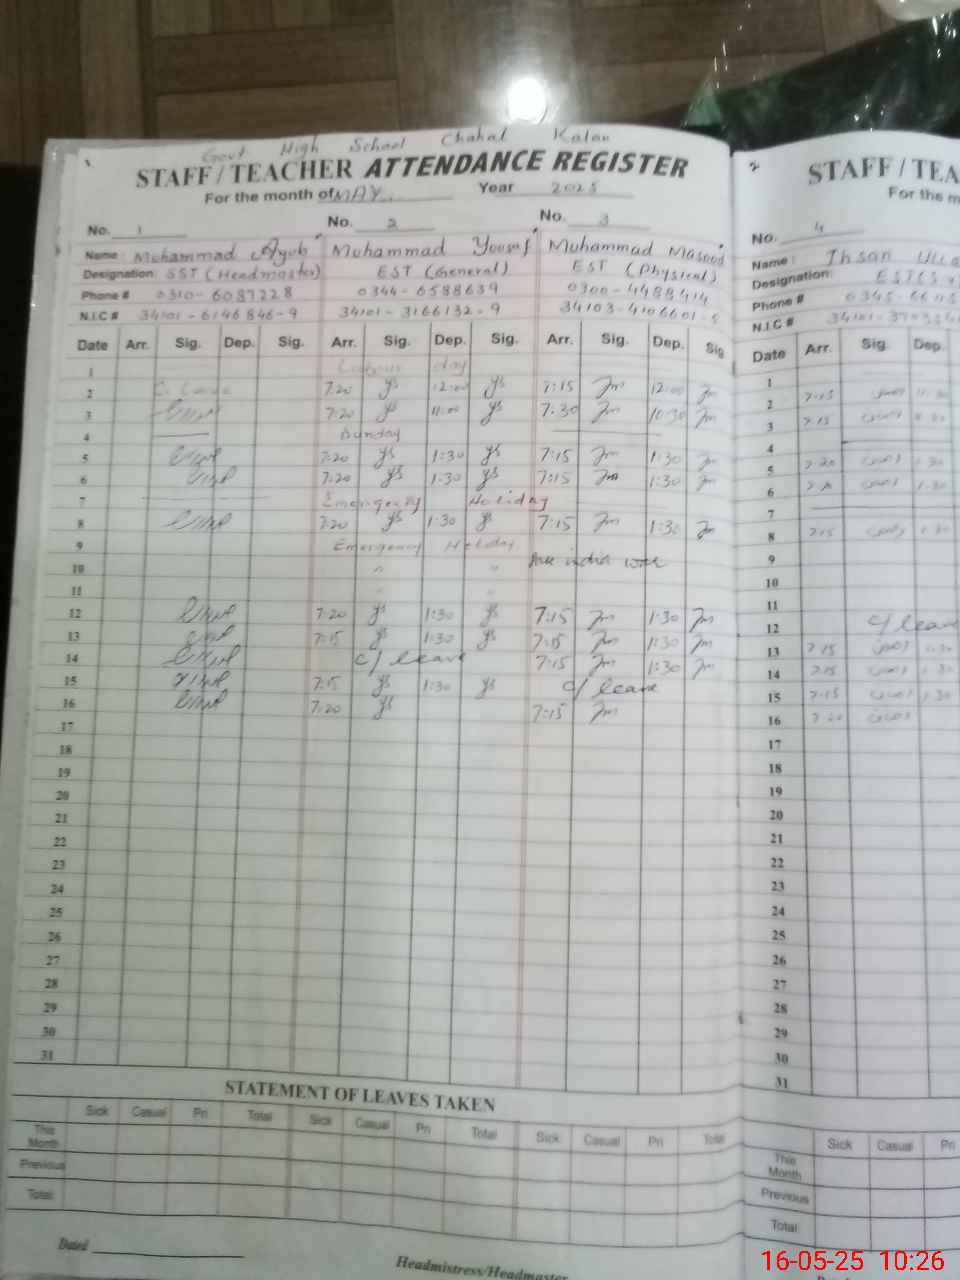 Govt High School Chahal Kalan
1 STAFF / TEACHER ATTENDANCE REGISTER
For the month of MAY Year 2025
No. 1 No. 2 No. 3
Name : Muhammad Ayub Muhammad Yousaf Muhammad Masood
Designation: SST (Headmaster) EST (General) EST (Physical)
Phone # 0310-6087228 0344-6588639 0300-4488414
N.I.C # 34101-6146846-9 34101-3166132-9 34103-4106601-5
Date Arr. Sig. Dep. Sig. Arr. Sig. Dep. Sig. Arr. Sig. Dep. Sig
1 Labour day
2 C. Leave 7:20 ys 12:00 ys 7:15 Jm 12:00 Jm
3 7:20 ys 11:00 ys 7:30 Jm 10:30 Jm
4 Sunday
5 7:20 ys 1:30 ys 7:15 Jm 1:30 Jm
6 7:20 ys 1:30 ys 7:15 Jm 1:30 Jm
7 Emergency Holiday
8 7:20 ys 1:30 ys 7:15 Jm 1:30 Jm
9 Emergency Holiday
10 " " india
11 " "
12 7:20 ys 1:30 ys 7:15 Jm 1:30 Jm
13 7:15 ys 1:30 ys 7:15 Jm 1:30 Jm
14 c/ leave 7:15 Jm 1:30 Jm
15 7:15 ys 1:30 ys c/ leave
16 7:20 ys 7:15 Jm
17
18
19
20
21
22
23
24
25
26
27
28
29
30
31
STATEMENT OF LEAVES TAKEN
Sick Casual Pri Total Sick Casual Pri Total Sick Casual Pri Total
This Month
Previous
Total
Dated
Headmistress/Headmaster
2 STAFF / TEA
For the m
No. 4
Name : Ihsan Ulla
Designation:
Phone # 0345-
N.I.C # 34101-
Date Arr. Sig. Dep.
1
2 7:15
3 7:15
4
5 7:20 1:30
6 1:30
7
8 7:15 1:30
9
10
11
12 c/ leave
13 7:15 1:30
14 7:15 1:30
15 7:15 1:30
16 7:20
17
18
19
20
21
22
23
24
25
26
27
28
29
30
31
Sick Casual Pri
This Month
Previous
Total
16-05-25 10:26